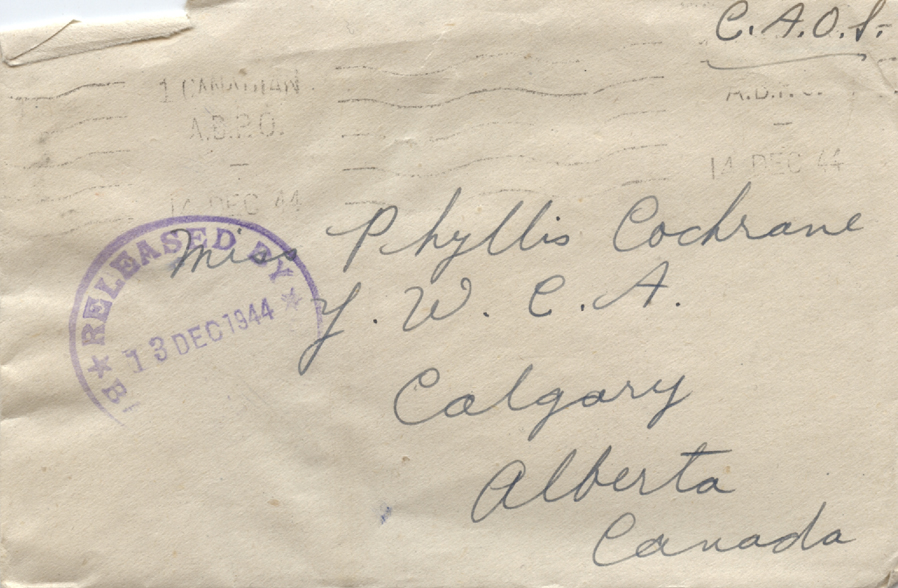 C.A.O.S.
1 CANADIAN
A.B.P.O.
—
14 DEC 44
A.B.P.O.
—
14 DEC 44
RELEASED BY
13 DEC 1944
Miss Phyllis Cochrane
Y.W.C.A.
Calgary
Alberta
Canada